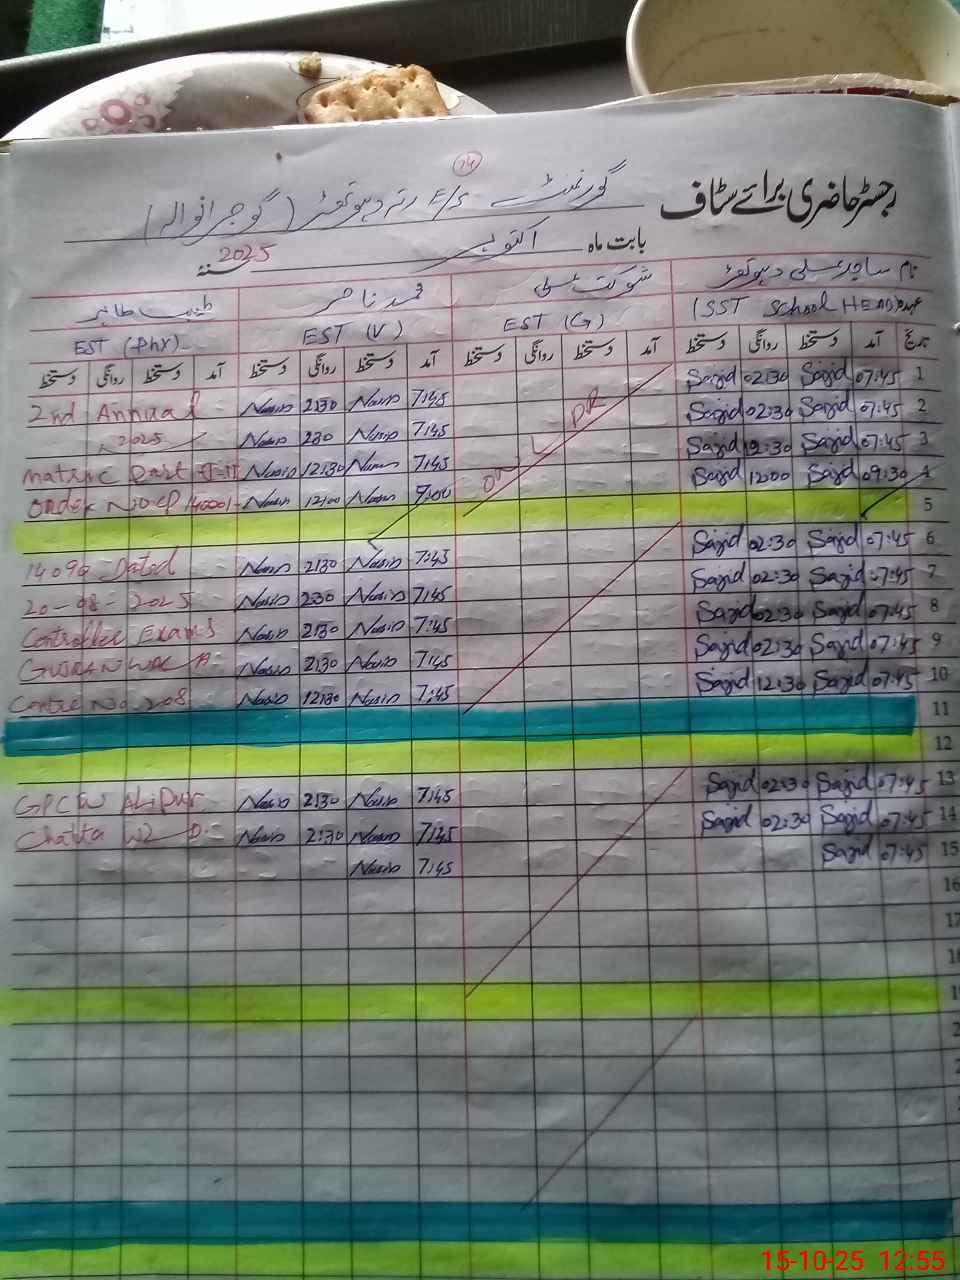 24
رجسٹر حاضری برائے سٹاف گورنمنٹ E/S رتہ دہوتھڑ (گوجرانوالہ)
بابت ماہ اکتوبر سنہ 2025
نام ساجد علی دہوتھڑ شوکت علی محمد ناصر طیب طاہر
(SST School HEAD) EST (G) EST (V) EST (Phy)
تاریخ آمد دستخط روانگی دستخط آمد دستخط روانگی دستخط آمد دستخط روانگی دستخط آمد دستخط روانگی دستخط
2nd Annual Nasir 2:30 Nasir 7:45 Sajid 02:30 Sajid 07:45 1
2025 Nasir 2:30 Nasir 7:45 Sajid 02:30 Sajid 07:45 2
Matric Part Nasir 12:30 Nasir 7:45 ON L PR Sajid 12:30 Sajid 07:45 3
Order No CP 14000/- Nasir 12:00 Nasir Sajid 12:00 Sajid 09:30 4
5
14090 Dated Nasir 2:30 Nasir 7:45 Sajid 02:30 Sajid 07:45 6
20-08-2025 Nasir 2:30 Nasir 7:45 Sajid 02:30 Sajid 07:45 7
Controller Exams Nasir 2:30 Nasir 7:45 Sajid 02:30 Sajid 07:45 8
Nasir 2:30 Nasir 7:45 Sajid 02:30 Sajid 07:45 9
Centre No. 208 Nasir 12:30 Nasir 7:45 Sajid 12:30 Sajid 07:45 10
11
12
GPCW Alipur Nasir 2:30 Nasir 7:45 Sajid 02:30 Sajid 07:45 13
Chatta Nasir 2:30 Nasir 7:45 Sajid 02:30 Sajid 07:45 14
Nasir 7:45 Sajid 07:45 15
16
15-10-25 12:55